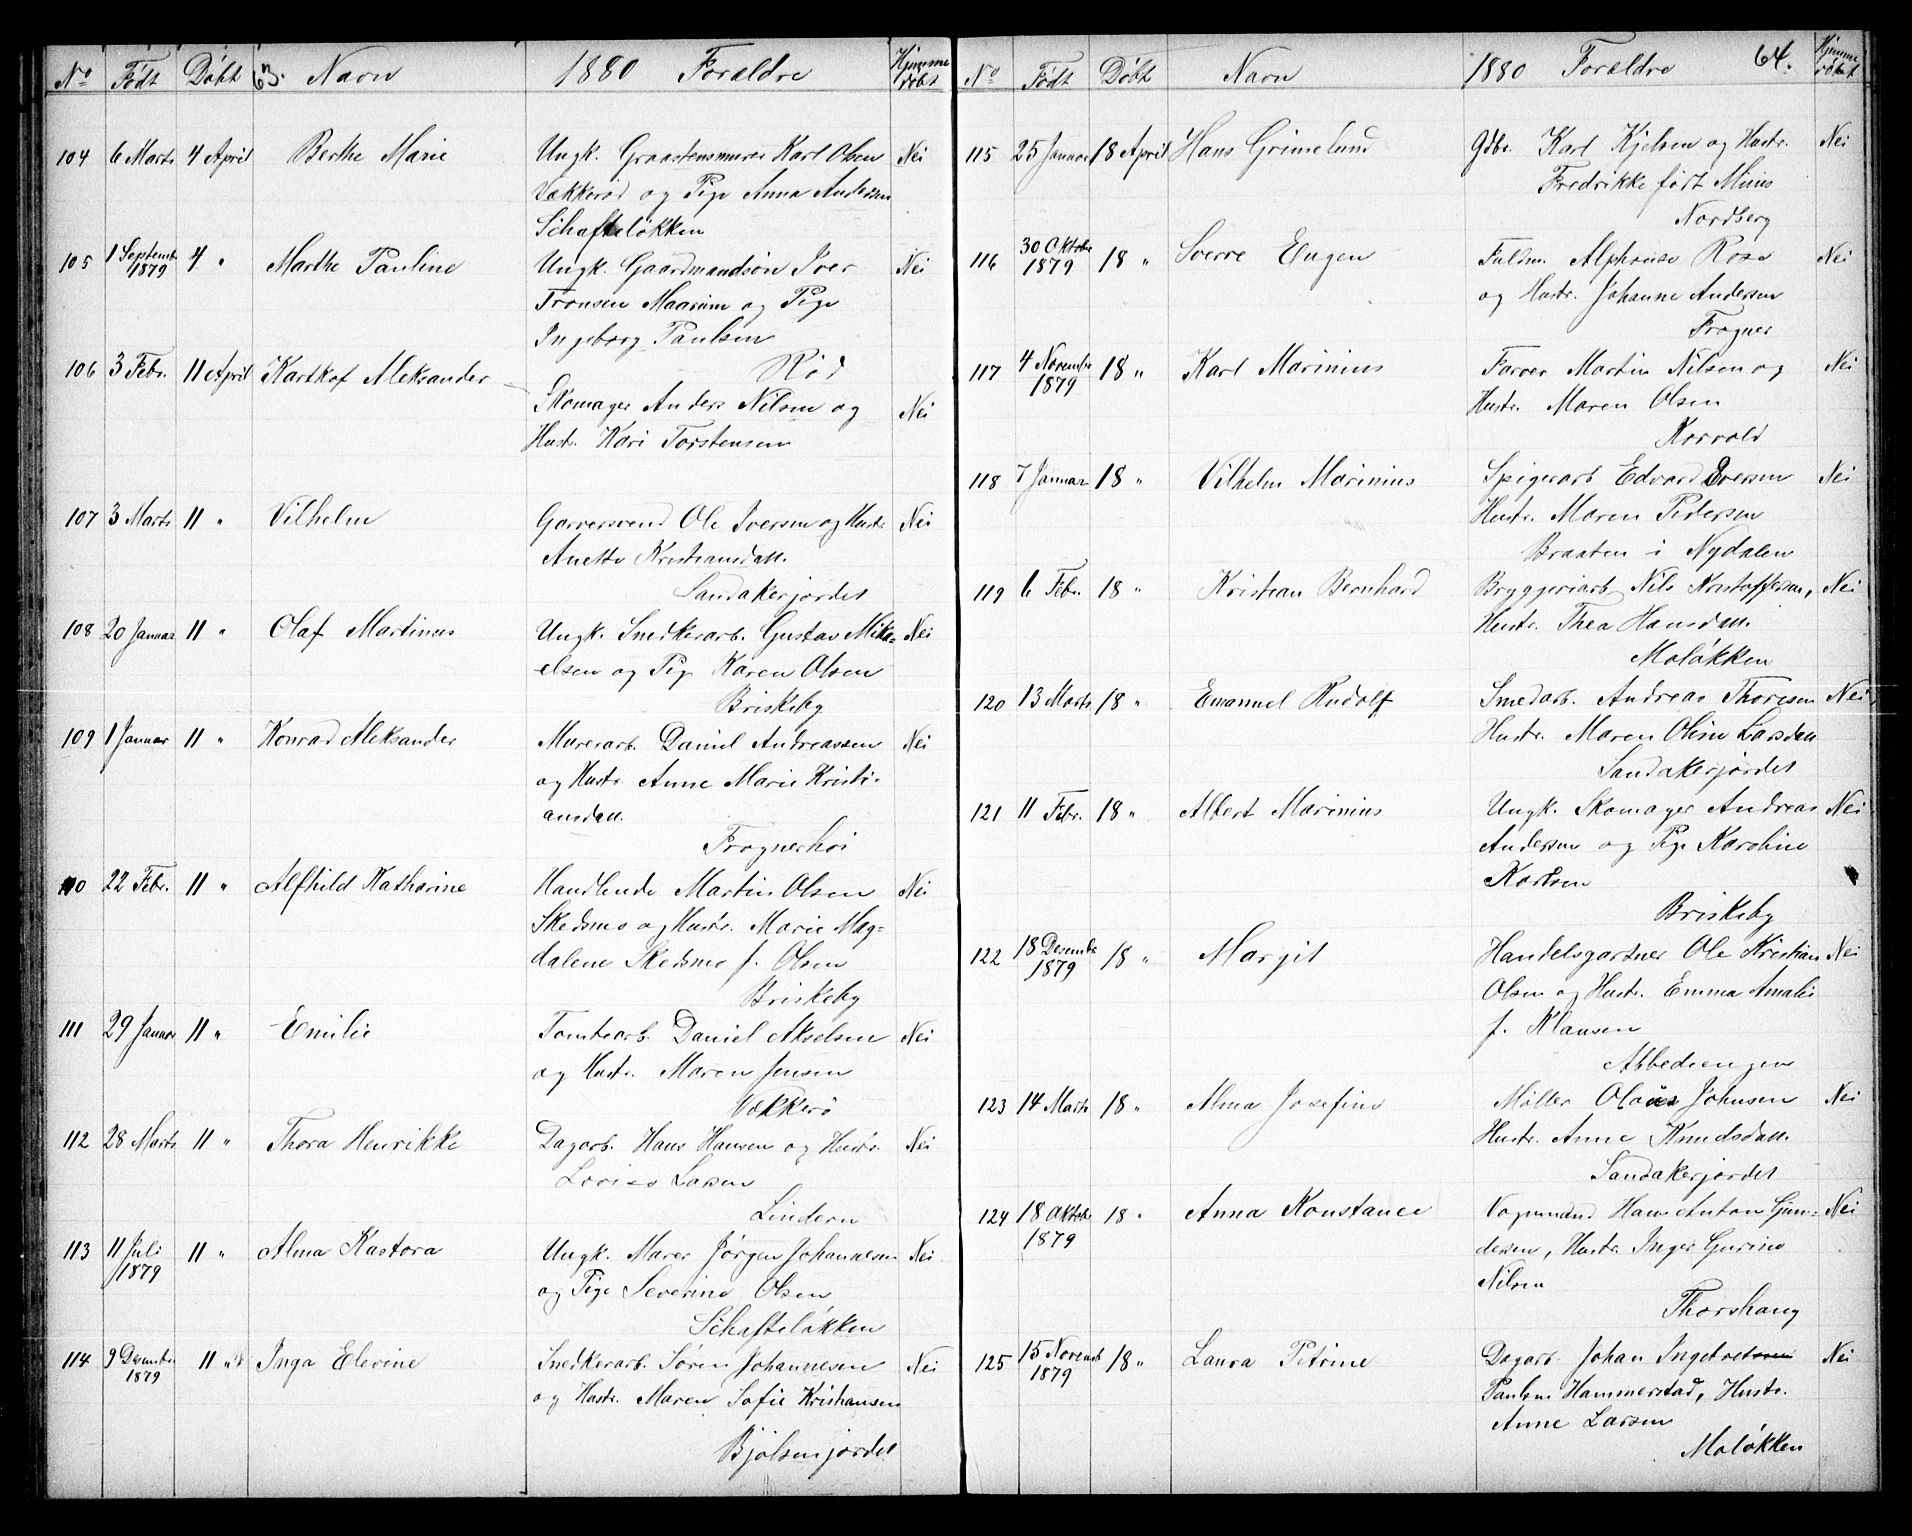 No Født Døbt 63. Navn 1880 Forældre Hjemme døbt
104 6 Marts 4 April Berthe Marie Ungk. Graastensmurer Karl Olsen Nei
Vækkerød og Pige Anna Andersen
Schafteløkken
105 1 Septembr 1879 4 " Marthe Pauline Ungk. Gaardmandsøn Iver Nei
Tronsen Maarum og Pige
Ingeborg Paulsen
Rød
106 3 Febr. 11 April Kartkof Aleksander
Skomager Anders Nilsen og Nei
Hustr. Kari Torstensen
107 3 Marts 11 " Vilhelm Garversvend Ole Iversen og Hustr. Nei
Anette Kristiansdatt.
Sandakerjordet
108 20 Januar 11 " Olaf Martinus Ungk. Snedkerarb. Gustav Mika- Nei
elsen og Pige Karen Olsen
Briskeby
109 1 Januar 11 " Konrad Aleksander Murerarb. Daniel Andreassen Nei
og Hustr. Anne Marie Kristi-
ansdatt.
Frognerhøi
110 22 Febr. 11 " Alfhild Katharine Handlende Martin Olsen Nei
Skedsmo og Hustr. Marie Mag-
dalene Skedsmo f. Olsen
Briskeby
111 29 Januar 11 " Emilie Tomtearb. Daniel Akselsen Nei
og Hustr. Maren Jensen
Vækkerø
112 28 Marts 11 " Thora Henrikke Dagarb. Hans Hansen og Hustr. Nei
Lovise Larsen
Lindern
113 11 Juli 1879 11 " Alma Kastora Ungk. Murer Jørgen Johannesen Nei
og Pige Severine Olsen
Schafteløkken
114 9 Desember 1879 11 " Inga Elevine Snedkerarb. Søren Johannesen Nei
og Hustr. Maren Sofie Kristiansen
Bjølsenjordet
No Født Døbt Navn 1880 Forældre 64. Hjemme døbt
115 25 Januar 18 April Hans Grimelund Gdbr. Karl Kjelsen og Hustr. Nei
Fredrikke født Minis
Nordberg
116 30 Oktober 1879 18 " Sverre Eugen Fuldm. Alphonse Rose Nei
og Hustr. Johanne Andersen
Frogner
117 4 Novembr 1879 18 " Karl Marinius Farver Martin Nilsen og Nei
Hustr. Maren Olsen
Korvold
118 7 Januar 18 " Vilhelm Marinius Spigerarb Edvard Iversen Nei
Hustr. Maren Pedersen
Braaten i Nydalen
119 6 Febr. 18 " Kristian Bernhard Bryggeriarb. Nils Kristoffersen, Nei
Hustr. Thea Hansdatt.
Moløkken
120 13 Marts 18 " Emanuel Rudolf Smedarb. Andreas Thoresen Nei
Hustr. Maren Oline Larsdatt
Sandakerjordet
121 11 Febr. 18 " Albert Marinius Ungk. Skomager Andreas Nei
Andersen og Pige Karoline
Karlsen
Briskeby
122 18 Desembr 1879 18 " Margit Handelsgartner Ole Kristian Nei
Olsen og Hustr. Emma Amalie
f. Klausen
Abbediengen
123 14 Marts 18 " Alma Josefine Møller Olaus Johnsen Nei
Hustr. Anne Knudsdatt.
Sandakerjordet
124 18 Oktobr 1879 18 " Anna Konstance Vognmand Hans Anton Gun- Nei
dersen, Hustr. Inger Gurine
Nilsen
Thorshaug
125 15 Novembr 1879 18 " Laura Petrine Dagarb. Johan Ingebretsen Nei
Paulsen Hammerstad, Hustr.
Anne Larsen
Moløkken